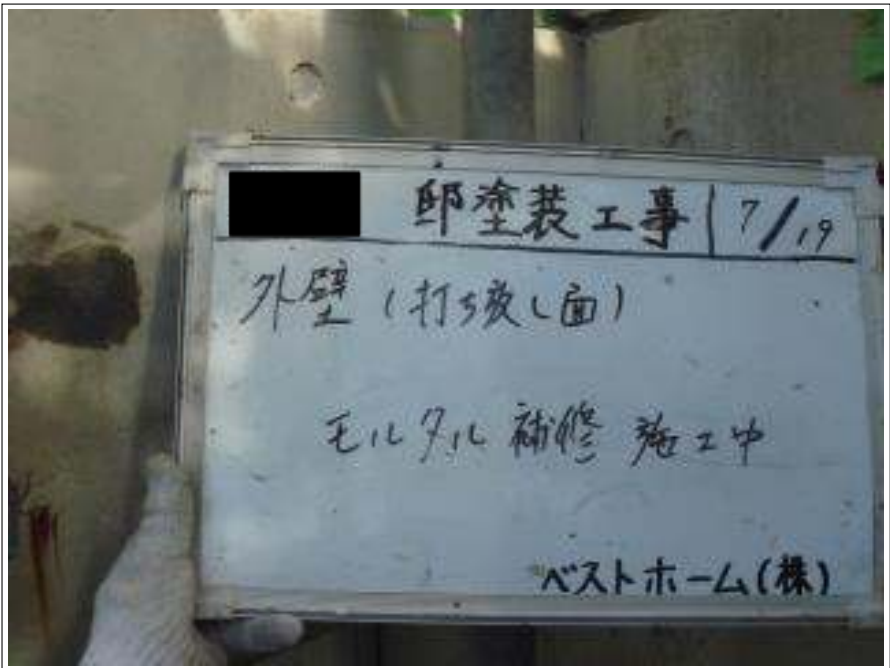 邸塗装工事 7/19
外壁(打ち放し面)
モルタル補修 施工中
ベストホーム(株)